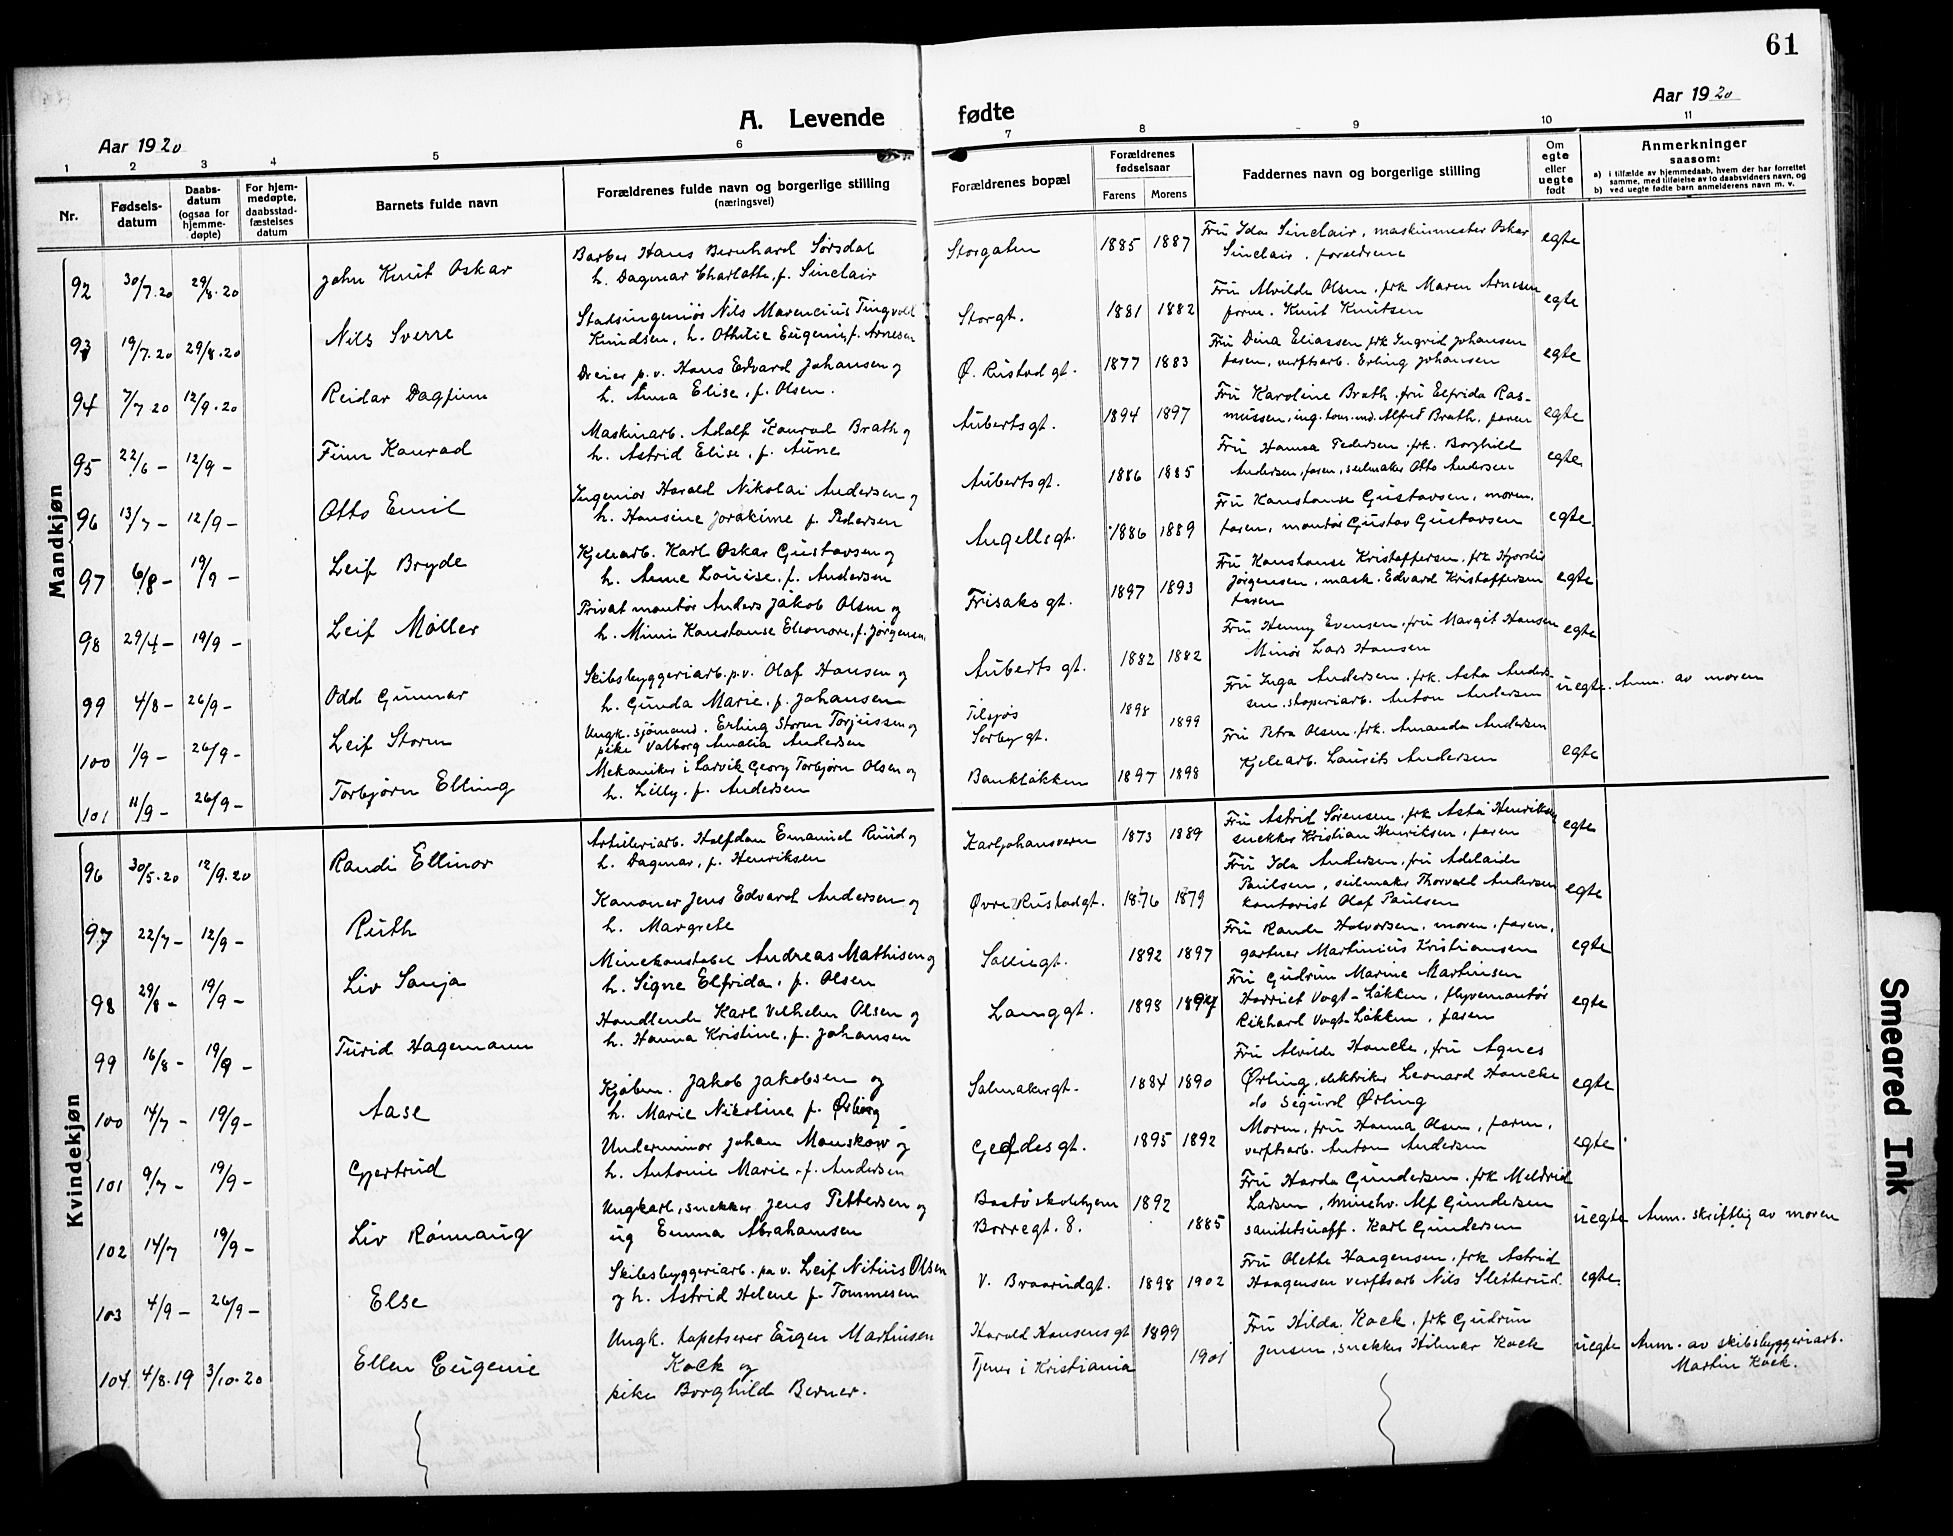 61
A. Levende fødte
Aar 1920
Aar 1920
1 2 3 4 5 6 7 8 9 10 11
Nr.
Fødsels-
datum
Daabs-
datum
(ogsaa for
hjemme-
døpte)
For hjem-
medøpte,
daabsstad-
fæstelses
datum
Barnets fulde navn
Forældrenes fulde navn og borgerlige stilling
(næringsvei)
Forældrenes bopæl
Forældrenes
fødselsaar
Farens Morens
Faddernes navn og borgerlige stilling
Om
egte
eller
uegte
født
Anmerkninger
saasom:
a) i tilfælde av hjemmedaab, hvem der har forrettet
samme, med tilføielse av to daabsvidners navn, og
b) ved uegte fødte barn anmelderens navn m. v.
Mandkjøn
92 30/7.20 29/8.20 John Knut Oskar
Barber Hans Bernhard Sørsdal
h. Dagmar Charlotte, f. Sinclair
Storgaten 1885 1887
Fru Ida Sinclair, maskinmester Oskar
Sinclair, forældrene
egte
93 19/7.20 29/8.20 Nils Sverre
Stadsingeniør Nils Marencius Tingvold
Knudsen, h. Othilie Eugenie, f. Arnesen
Storgt. 1881 1882
Fru Alvilde Olsen, frk Maren Arnesen
foræ. Knut Knutsen
egte
94 7/7 20 12/9.20 Reidar Dagfinn
Dreier p.v. Hans Edvard Johansen og
h. Anna Elise, f. Olsen.
Ø. Rustad gt. 1877 1883
Fru Dina Eliassen frk Ingrid Johansen
faren, verftsarb. Erling Johansen
egte
95 22/6 - 12/9 - Finn Konrad
Maskinarb. Adolf Konrad Brath og
h. Astrid Elise, f. Aune
Aubertsgt. 1894 1897
Fru Karoline Brath, fru Elfrida Ras-
mussen, ing. Alfred Brath, faren
egte
96 13/7 - 12/9 - Otto Emil
Ingeniør Harald Nikolai Andersen og
h. Hansine Jorakime f. Pedersen
Aubertsgt. 1886 1885
Fru Hanna Pedersen, frk. Borghild
Andersen, faren, seilmaker Otto Andersen
egte
97 6/8 - 19/9 - Leif Bryde
Kjelearb. Karl Oskar Gustavsen og
h. Anne Louise, f. Andersen
Angellsgt. 1886 1889
Fru Konstanse Gustavsen, moren,
faren, montør Gustav Gustavsen
egte
98 29/4 - 19/9 - Leif Møller
Privat montør Anders Jakob Olsen og
h. Mimi Konstanse Eleonore, f. Jørgensen
Frisaks gt. 1897 1893
Fru Konstanse Kristoffersen, frk Hjørdis
Jørgensen, mask. Edvard Kristoffersen
faren
egte
99 4/8 - 26/9 - Odd Gunnar
Skibsbyggeriarb. p.v. Olaf Hansen og
h. Gunda Marie, f. Johansen
Auberts gt. 1882 1882
Fru Henny Evensen, fru Margit Hansen
Minør Lars Hansen
egte
100 1/9 - 26/9 - Leif Storm
Ungk. sjømand. Erling Storm Torjussen og
pike Valborg Amalia Andersen
Sørby gt. 1898 1899
Fru Inga Andersen, frk. Asta Ander-
sen, støperiarb. Anton Andersen
uegte. Anm. av moren
101 11/9 - 26/9 - Torbjørn Elling
Mekaniker i Larvik Georg Torbjørn Olsen og
h. Lilly, f. Andersen
Bankløkken 1897 1898
Fru Petra Olsen, frk. Amanda Andersen
Kjelearb. Laurits Andersen
egte
Kvindekjøn
96 30/5.20 12/9.20 Randi Ellinor
Artilleriarb. Halfdan Emanuel Ruud og
h. Dagmar, f. Henriksen
Karljohansvern 1873 1889
Fru Astrid Sørensen, frk Asta Henriksen
snekker Kristian Henriksen, faren
egte
97 22/7 - 12/9 - Ruth
Kanoner Jens Edvard Andersen og
h. Margrete
Øvre Rustadgt. 1876 1879
Fru Ida Andersen, fru Adelaide
Paulsen, seilmaker Thorvald Andersen
kontorist Olaf Paulsen
egte
98 29/8 - 19/9 - Liv Sonja
Minekonstabel Andreas Mathisen og
h. Signe Elfrida, f. Olsen
Solliegt. 1892 1897
Fru Rande Halvorsen, moren, faren,
gartner Martinius Kristiansen
egte
99 16/8 - 19/9 - Turid Hagemann
Handlende Karl Vilhelm Olsen og
h. Hanna Kristine, f. Johansen
Langgt. 1893 1897
Fru Gudrun Marine Martinsen
Harriet Vogt-Løkken, flyvemontør
Rikhard Vogt-Løkken, faren
egte
100 14/7 - 19/9 - Aase
Kjøbm. Jakob Jakobsen og
h. Marie Nikoline f. Ørbæg
Salmakergt. 1884 1890
Fru Alvilde Hancke, fru Agnes
Ørling, elektriker Leonard Hancke
do Sigurd Ørling
egte
101 9/7 - 19/9 - Gjertrud
Underminør Johan Monskow og
h. Antonie Marie, f. Andersen
Geddesgt. 1895 1892
Moren, fru Hanna Olsen, faren,
verftsarb. Anton Andersen
egte
102 14/7 19/9 - Liv Rønnaug
Ungkarl, snekker Jens Pettersen og
ug Emma Abrahamsen
Bastø skolehjem 1892
Borregt. 8. 1885
Fru Harda Gundersen, frk Meldrid
Larsen, Minehv. Alf Gundersen
sanitetsuoff. Karl Gundersen
uegte Anm. skriftlig av moren
103 4/9 - 26/9 - Else
Skibsbyggeriarb. pa v. Leif Nitius Olsen
og h. Astrid Helene f. Tommesen
V. Braarudgt. 1898 1902
Fru Olette Haagensen, frk Astrid
Haagensen verftsarb Nils Sletterud.
egte
104. 4/8.19 3/10.20 Ellen Eugenie
Ungk. tapetserer Eugen Martinsen
Kock og
pike Borghild Berner.
Harald Hansens gt 1899
Tjener i Kristiania 1901
Fru Hilda Kock, frk Gudrun
Jensen, snekker Hilmar Kock
uegte Anm. av skibsbyggeriarb.
Martin Kock.
Smeared Ink